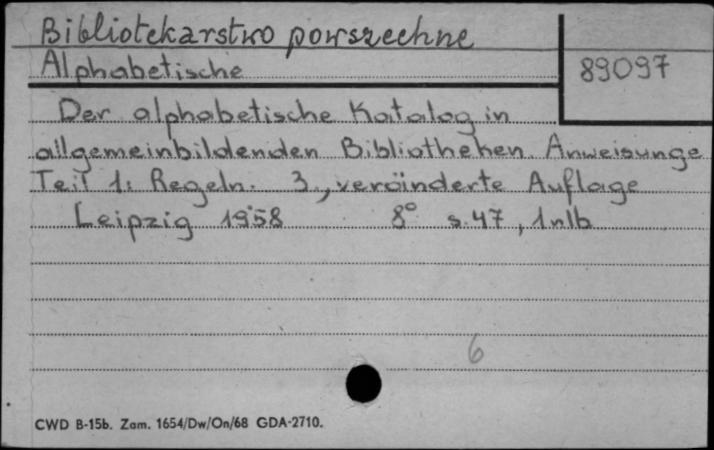 Bibliotekarstwo powszechne
Alphabetische
89097
Der alphabetische Katalog in
allgemeinbildenden Bibliotheken. Anweisunge
Teil 1: Regeln. 3., veränderte Auflage
Leipzig 1958 8° s. 47, 1 nlb
6
CWD B-15b. Zam. 1654/Dw/On/68 GDA-2710.